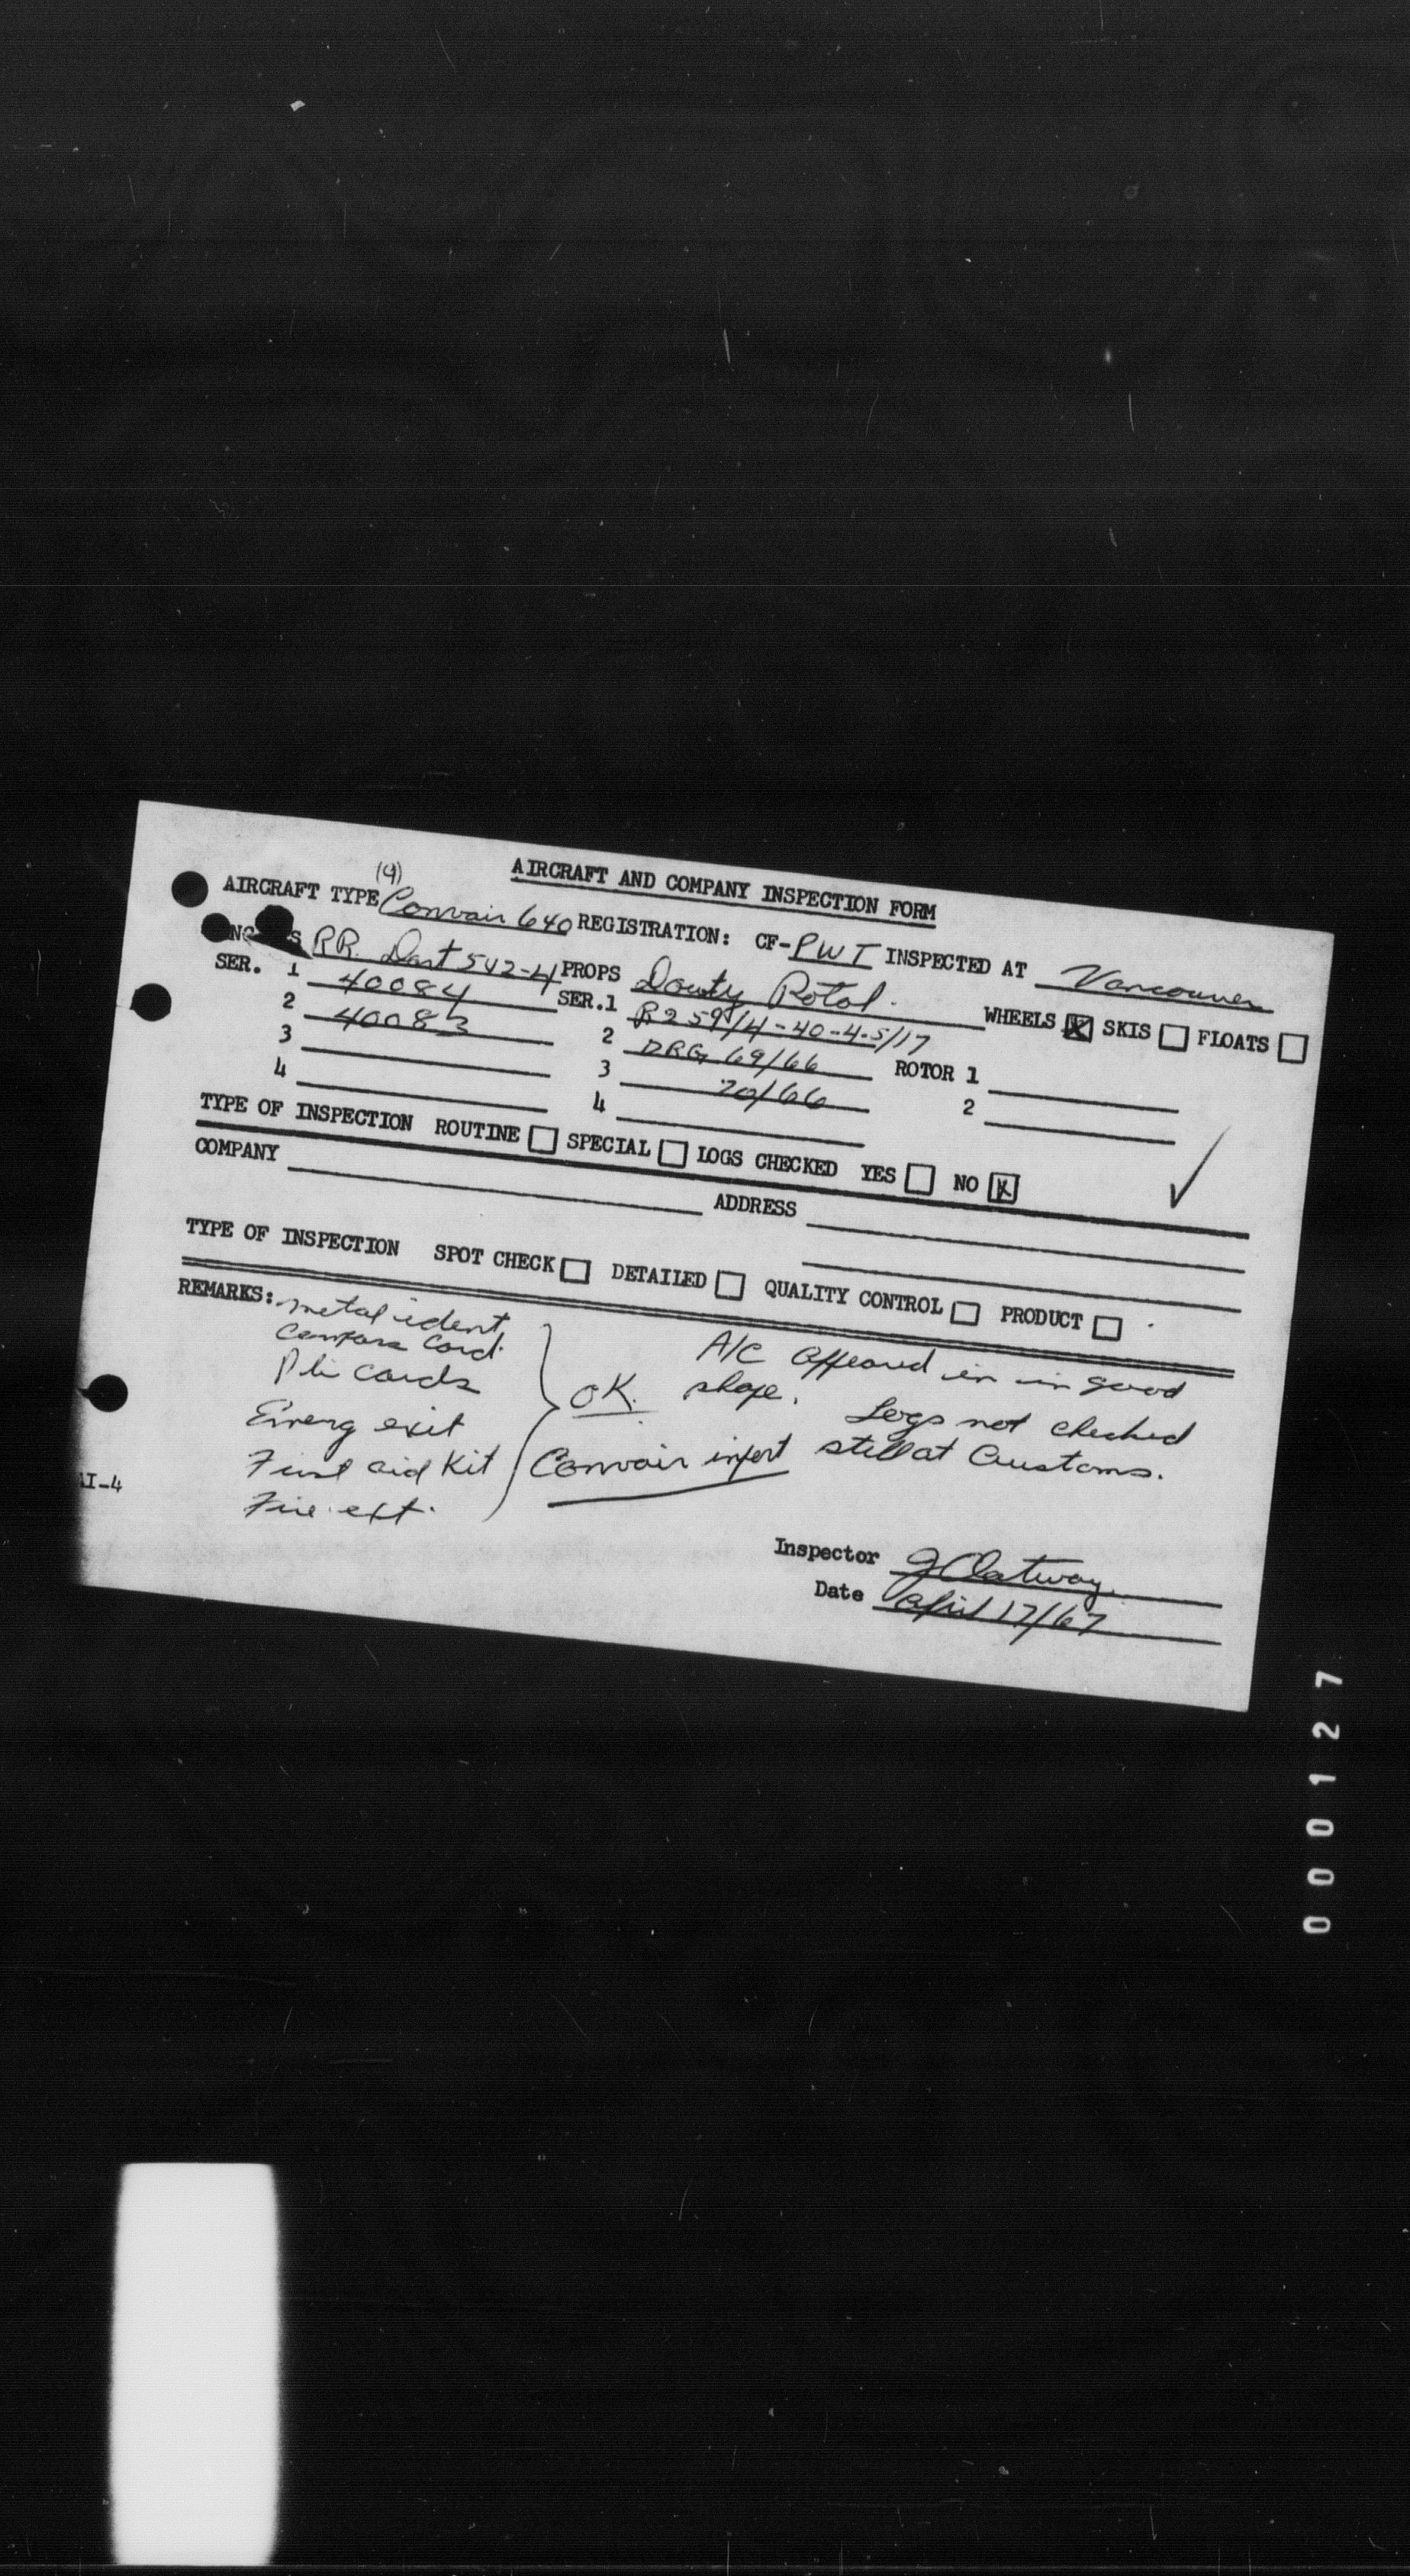 AIRCRAFT AND COMPANY INSPECTION FORM
(4)
AIRCRAFT TYPE Convair 640 REGISTRATION: CF-PWT INSPECTED AT Vancouver
RR. Dart 542-4 PROPS Dowty Rotol. WHEELS X SKIS FLOATS
SER. 1 40084 SER.1 R259/4-40-4.5/17
2 40083 2 DRG 69/66 ROTOR 1
3 3 70/66 2
4 4
TYPE OF INSPECTION ROUTINE SPECIAL LOGS CHECKED YES NO X
COMPANY ADDRESS
TYPE OF INSPECTION SPOT CHECK DETAILED QUALITY CONTROL PRODUCT
REMARKS: metal ident A/C appeared in in good
Compass Card. shape. Logs not checked
cards OK. still at Customs.
Emerg exit
First aid Kit Convair
Fire ext.
AI-4
Inspector
Date April 17/67
000127